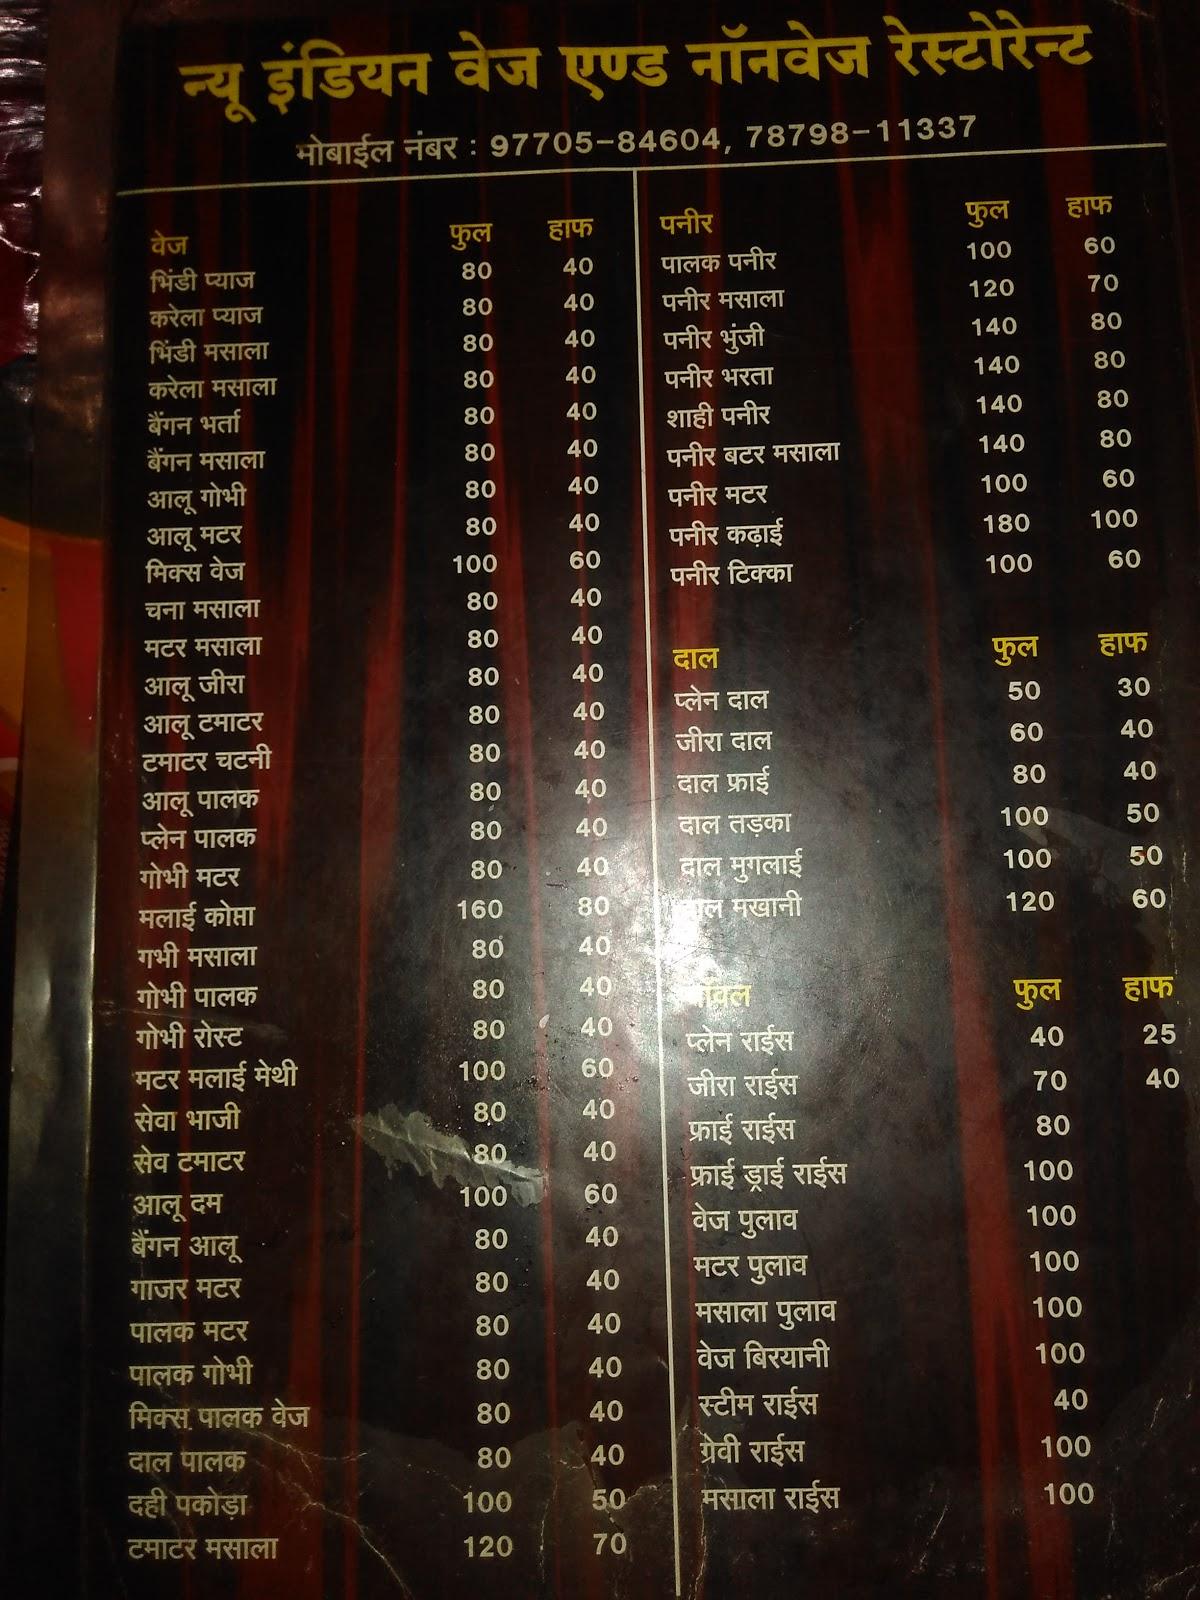 न्यू इंडियन वेज एण्ड नॉनवेज रेस्टोरेन्ट
मोबाईल नंबर : 97705-84604, 78798-11337
वेज फुल हाफ
भिंडी प्याज 80 40
करेला प्याज 80 40
भिंडी मसाला 80 40
करेला मसाला 80 40
बैंगन भर्ता 80 40
बैंगन मसाला 80 40
आलू गोभी 80 40
आलू मटर 80 40
मिक्स वेज 100 60
चना मसाला 80 40
मटर मसाला 80 40
आलू जीरा 80 40
आलू टमाटर 80 40
टमाटर चटनी 80 40
आलू पालक 80 40
प्लेन पालक 80 40
गोभी मटर 80 40
मलाई कोप्ता 160 80
गभी मसाला 80 40
गोभी पालक 80 40
गोभी रोस्ट 80 40
मटर मलाई मेथी 100 60
सेवा भाजी 80 40
सेव टमाटर 80 40
आलू दम 100 60
बैंगन आलू 80 40
गाजर मटर 80 40
पालक मटर 80 40
पालक गोभी 80 40
मिक्स पालक वेज 80 40
दाल पालक 80 40
दही पकोड़ा 100 50
टमाटर मसाला 120 70
पनीर फुल हाफ
पालक पनीर 100 60
पनीर मसाला 120 70
पनीर भुंजी 140 80
पनीर भरता 140 80
शाही पनीर 140 80
पनीर बटर मसाला 140 80
पनीर मटर 100 60
पनीर कढ़ाई 180 100
पनीर टिक्का 100 60
दाल फुल हाफ
प्लेन दाल 50 30
जीरा दाल 60 40
दाल फ्राई 80 40
दाल तड़का 100 50
दाल मुगलाई 100 50
दाल मखानी 120 60
फुल हाफ
प्लेन राईस 40 25
जीरा राईस 70 40
फ्राई राईस 80
फ्राई ड्राई राईस 100
वेज पुलाव 100
मटर पुलाव 100
मसाला पुलाव 100
वेज बिरयानी 100
स्टीम राईस 40
ग्रेवी राईस 100
मसाला राईस 100